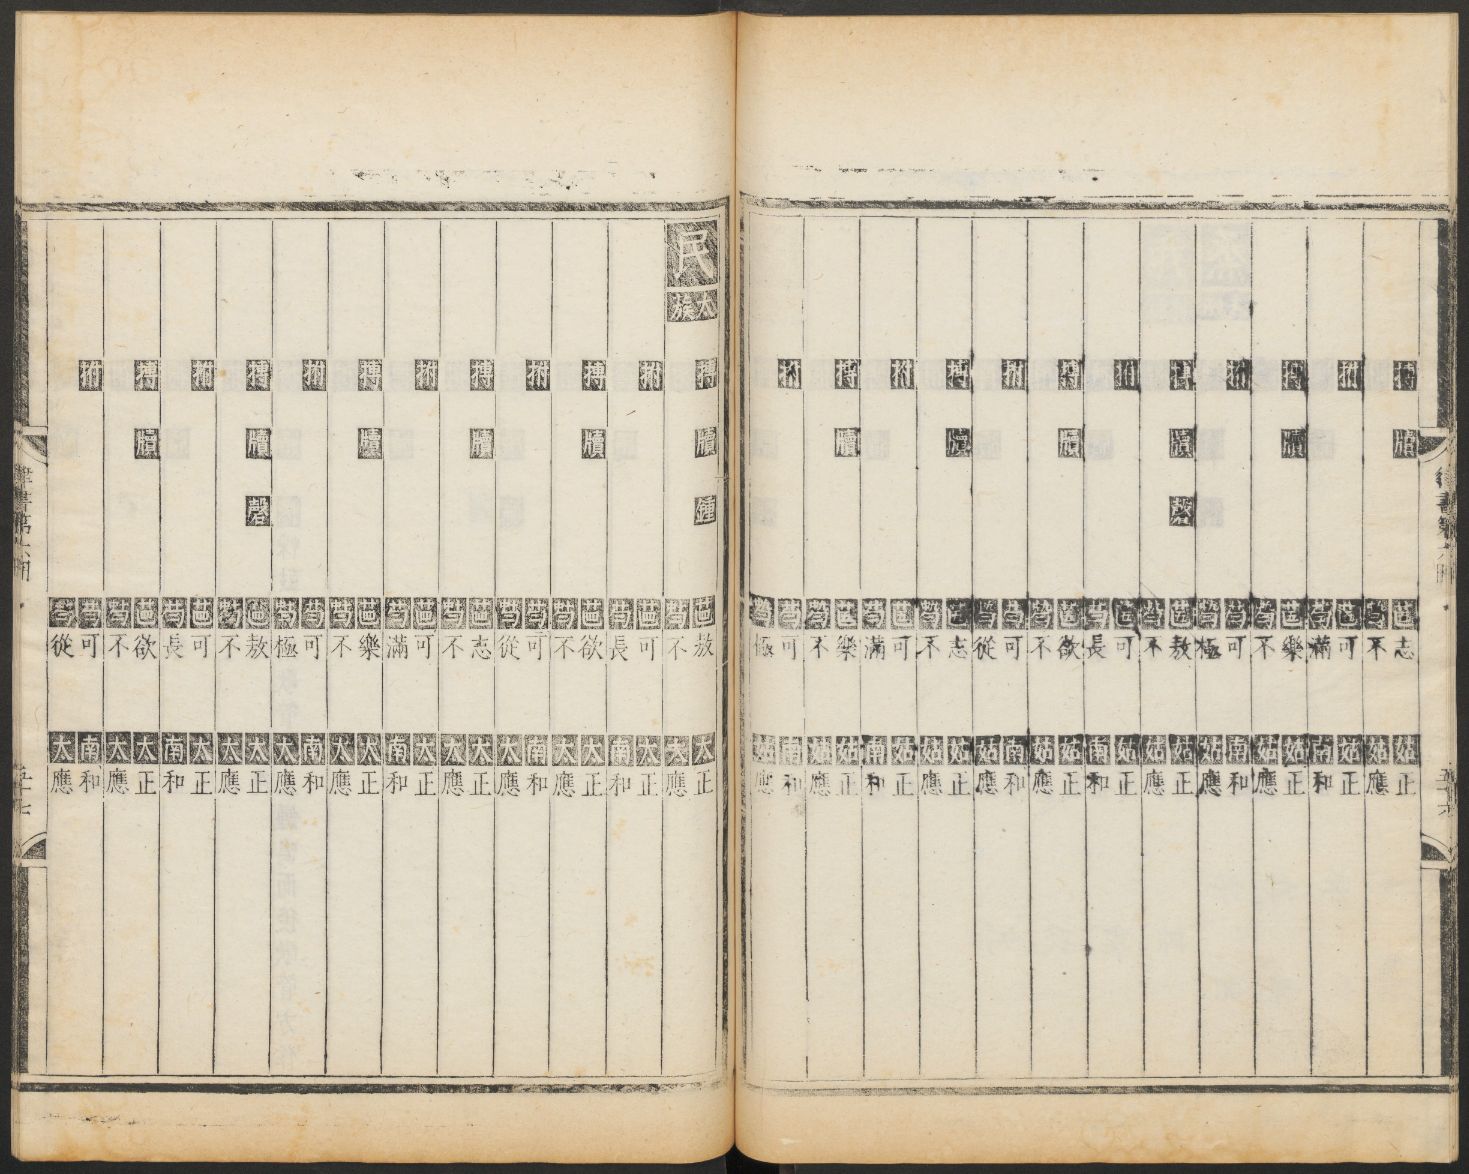 律書第六冊 五十六
搏 牘 志 姑 正
不 姑 應
拊 可 姑 正
滿 南 和
搏 牘 樂 姑 正
不 姑 應
拊 可 南 和
極 姑 應
搏 牘 磬 敖 姑 正
不 姑 應
拊 可 姑 正
長 南 和
搏 牘 欲 姑 正
不 姑 應
拊 可 南 和
從 姑 應
搏 牘 志 姑 正
不 姑 應
拊 可 姑 正
滿 南 和
搏 牘 樂 姑 正
不 姑 應
拊 可 南 和
極 姑 應
民 太簇
搏 牘 鍾 敖 太 正
不 太 應
拊 可 太 正
長 南 和
搏 牘 欲 太 正
不 太 應
拊 可 南 和
從 太 應
搏 牘 志 太 正
不 太 應
拊 可 太 正
滿 南 和
搏 牘 樂 太 正
不 太 應
拊 可 南 和
極 太 應
搏 牘 磬 敖 太 正
不 太 應
拊 可 太 正
長 南 和
搏 牘 欲 太 正
不 太 應
拊 可 南 和
從 太 應
律書第六冊 五十七